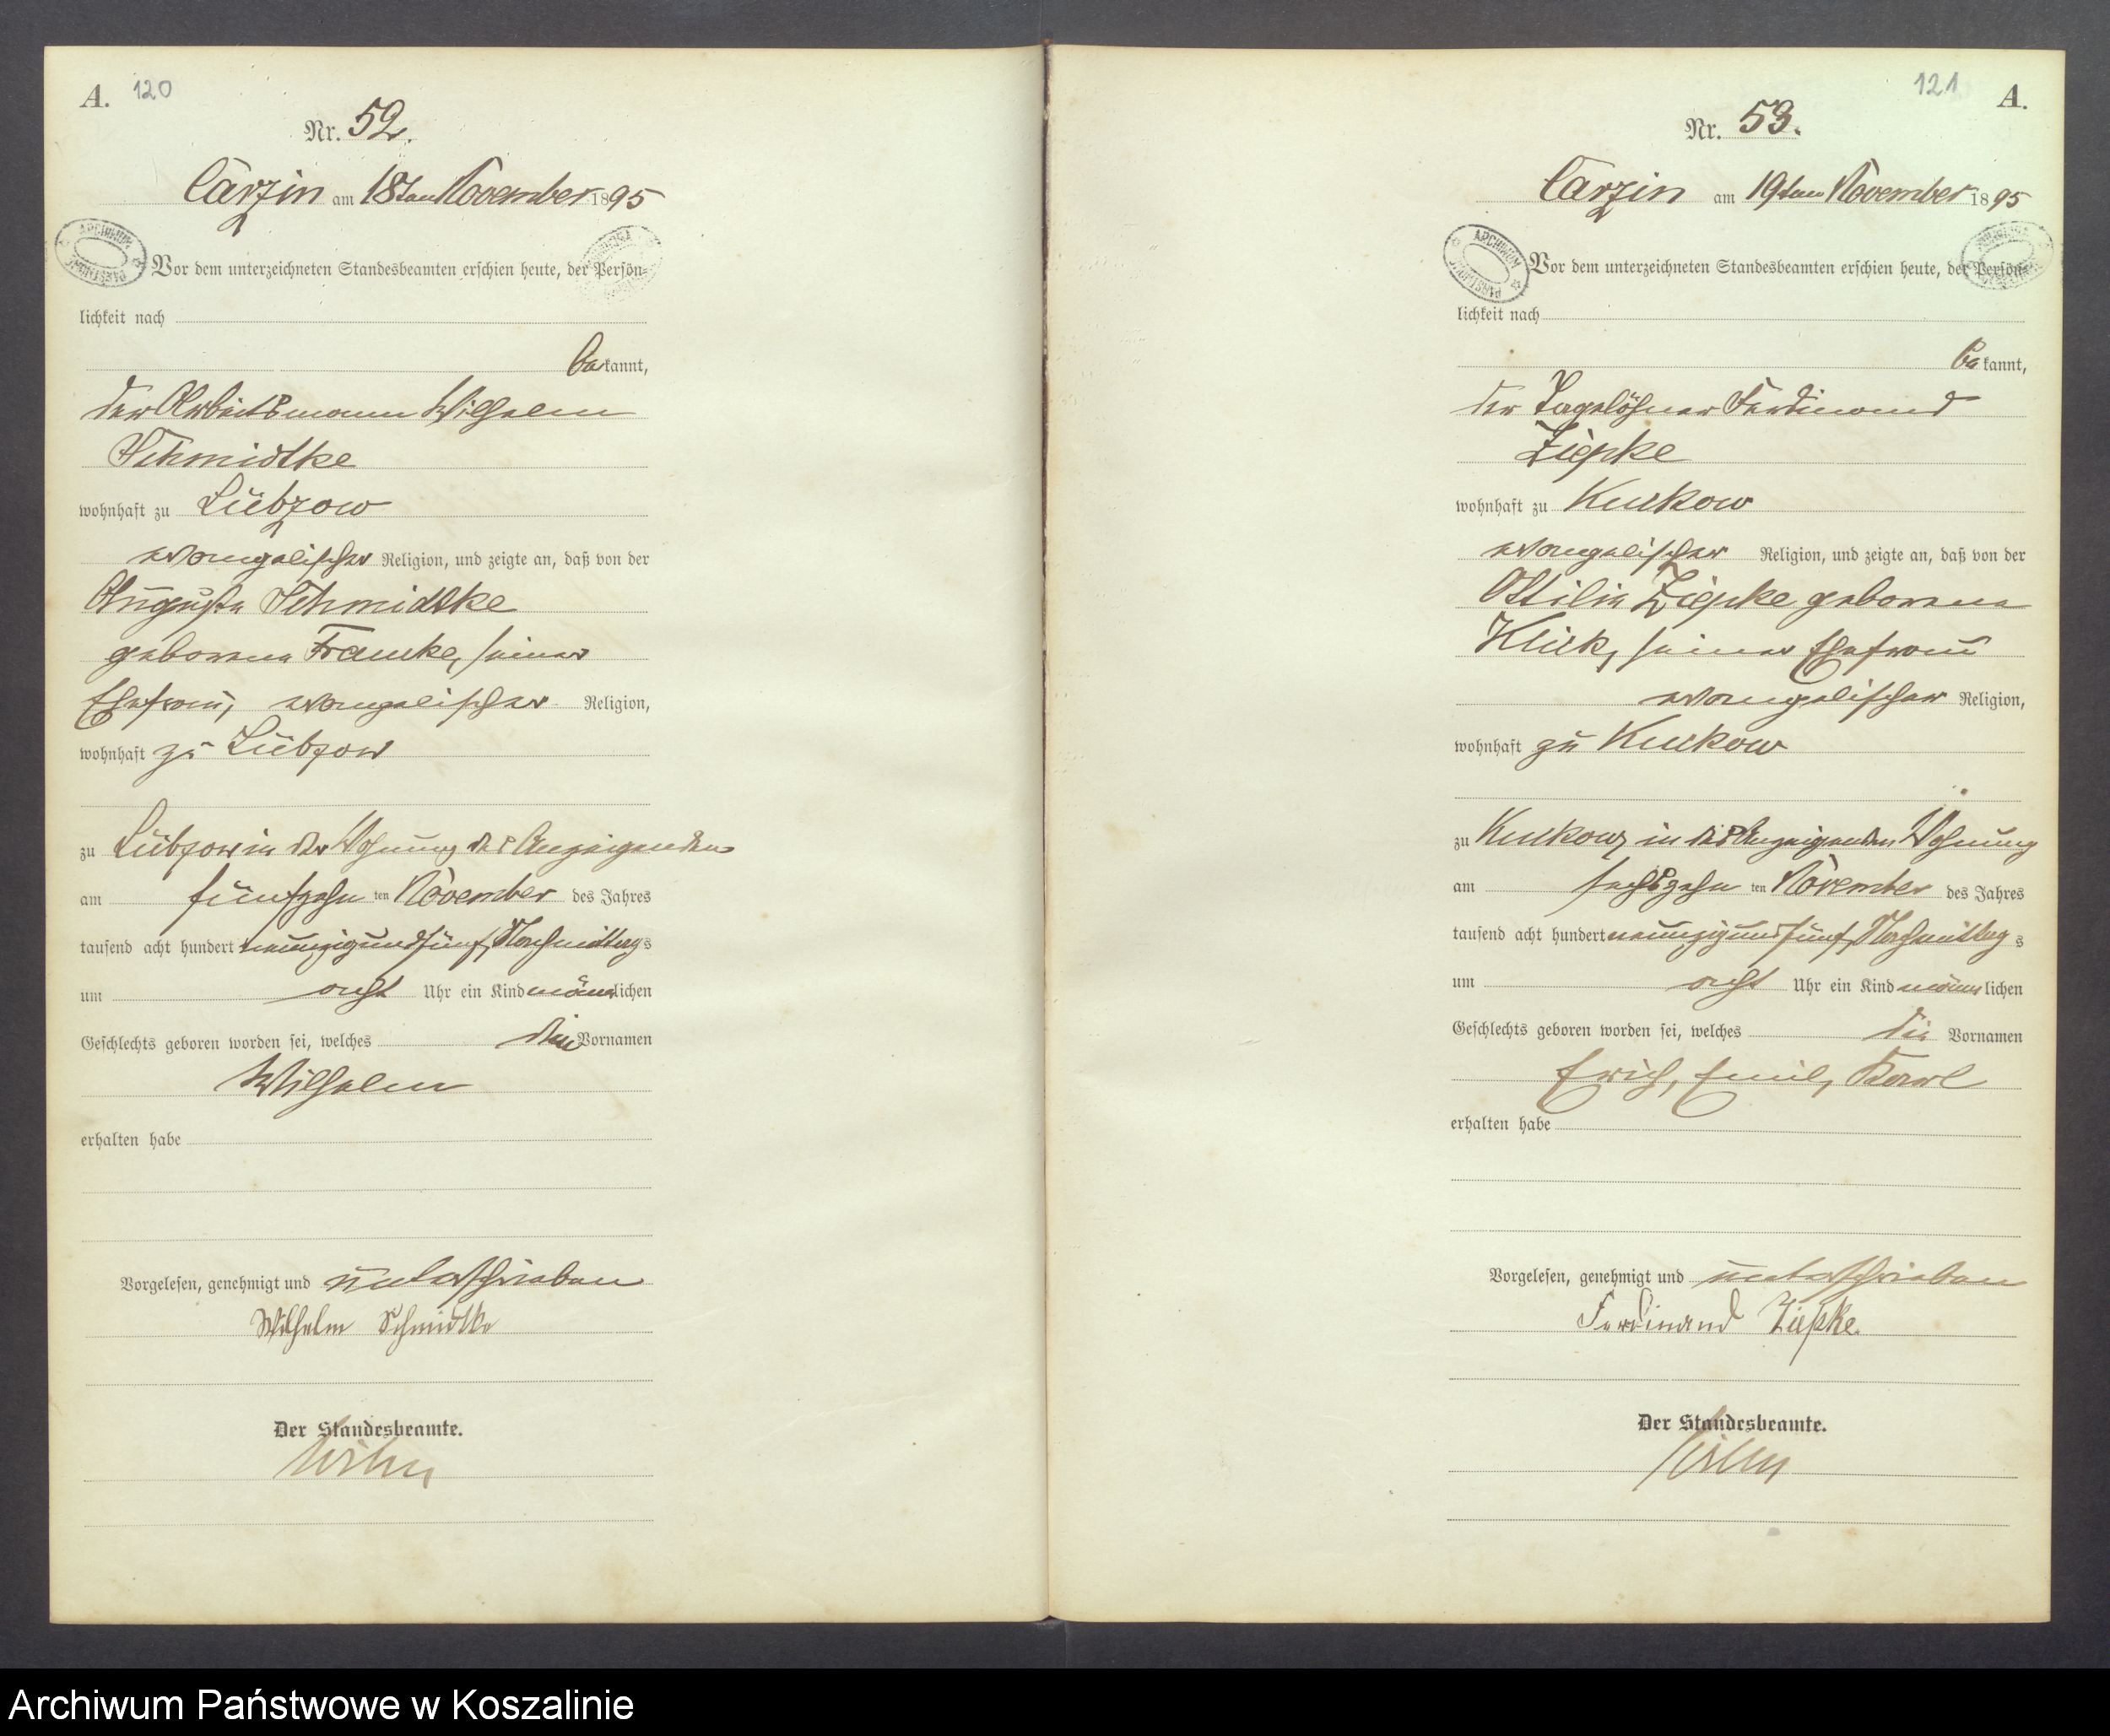 A. 120
Nr. 52.
Carzin am 18ten November 1895
ARCHIWUM PAŃSTWOWE
Vor dem unterzeichneten Standesbeamten erschien heute, der Persön-
lichkeit nach
bekannt,
der Arbeitsmann Wilhelm
Schmidtke
wohnhaft zu Lübzow
evangelischer Religion, und zeigte an, daß von der
Auguste Schmidtke
geborene Francke, seiner
Ehefrau, evangelischer Religion,
wohnhaft zu Lübzow
zu Lübzow in der Wohnung des Anzeigenden
am fünfzehn ten November des Jahres
tausend acht hundert neunzig und fünf, Nachmittags
um acht Uhr ein Kind männlichen
Geschlechts geboren worden sei, welches den Vornamen
Wilhelm
erhalten habe
Vorgelesen, genehmigt und unterschrieben
Wilhelm Schmidtke
Der Standesbeamte.
121 A.
Nr. 53.
Carzin am 19ten November 1895
ARCHIWUM PAŃSTWOWE
Vor dem unterzeichneten Standesbeamten erschien heute, der Persön-
lichkeit nach
bekannt,
der Tagelöhner Ferdinand
Ziepke
wohnhaft zu Kukow
evangelischer Religion, und zeigte an, daß von der
Ottilie Ziepke geborene
Klick, seiner Ehefrau
evangelischer Religion,
wohnhaft zu Kukow
zu Kukow, in des Anzeigenden Wohnung
am sechszehn ten November des Jahres
tausend acht hundert neunzig und fünf, Nachmittags
um acht Uhr ein Kind männlichen
Geschlechts geboren worden sei, welches die Vornamen
Erich, Emil, Karl
erhalten habe
Vorgelesen, genehmigt und unterschrieben
Ferdinand Ziepke.
Der Standesbeamte.
Archiwum Państwowe w Koszalinie